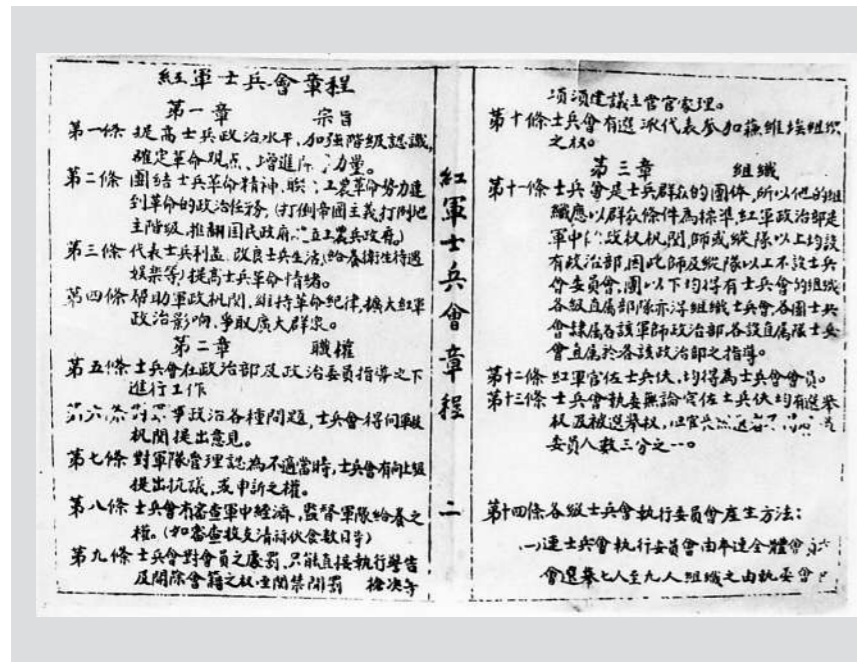 紅軍士兵會章程
第一章 宗旨
第一條 提高士兵政治水平,加強階級認識,
確定革命观点、增進 力量。
第二條 團結士兵革命精神,聯 工農革命势力達
到革命的政治任務,(打倒帝國主義打倒地
主階級,推翻国民政府, 立工農兵政府。)
第三條 代表士兵利益,改良士兵生活,(給养衛生待遇
娱樂等)提高士兵革命情绪。
第四條 帮助軍政机関,維持革命纪律,擴大紅軍
政治影响,爭取廣大群衆。
第二章 職權
第五條 士兵會在政治部及政治委員指導之下
進行工作
第六條 對軍事政治各種問題,士兵會得向軍政
机関提出意見。
第七條 對軍隊管理認為不適當時,士兵會有向上級
提出抗議,或申訴之權。
第八條 士兵會有審查軍中經濟,監督軍隊給养之
權。(如審查收支清 伙食數目等)
第九條 士兵會對會員之處罰,只能直接執行警告
及開除會籍之权, 関禁閉罰 槍决等
紅軍士兵會章程 二
項須建議主管官處理。
第十條 士兵會有選派代表参加蘇維埃組织
之权。
第三章 組織
第十一條 士兵會是士兵群众的團体,所以他的組
織應以群众條件為標準,紅軍政治部是
軍中 政权机関,師或縱隊以上均設
有政治部,因此師及縱隊以上不設士兵
會委員會,團以下均得有士兵會的組織
各級直属部隊亦得組織士兵會,各團士兵
會隸属各該軍師政治部,各設直属隊士兵
會直属於各該政治部之指導。
第十二條 紅軍官佐士兵伕,均得為士兵會會員。
第十三條 士兵會執委無論官佐士兵伕均有選舉
权及被選舉权,但官兵 選
委員人數三分之一。
第十四條 各級士兵會執行委員會產生方法:
(一)連士兵會執行委員會由本連全體會員大
會選舉七人至九人組織之由執委會